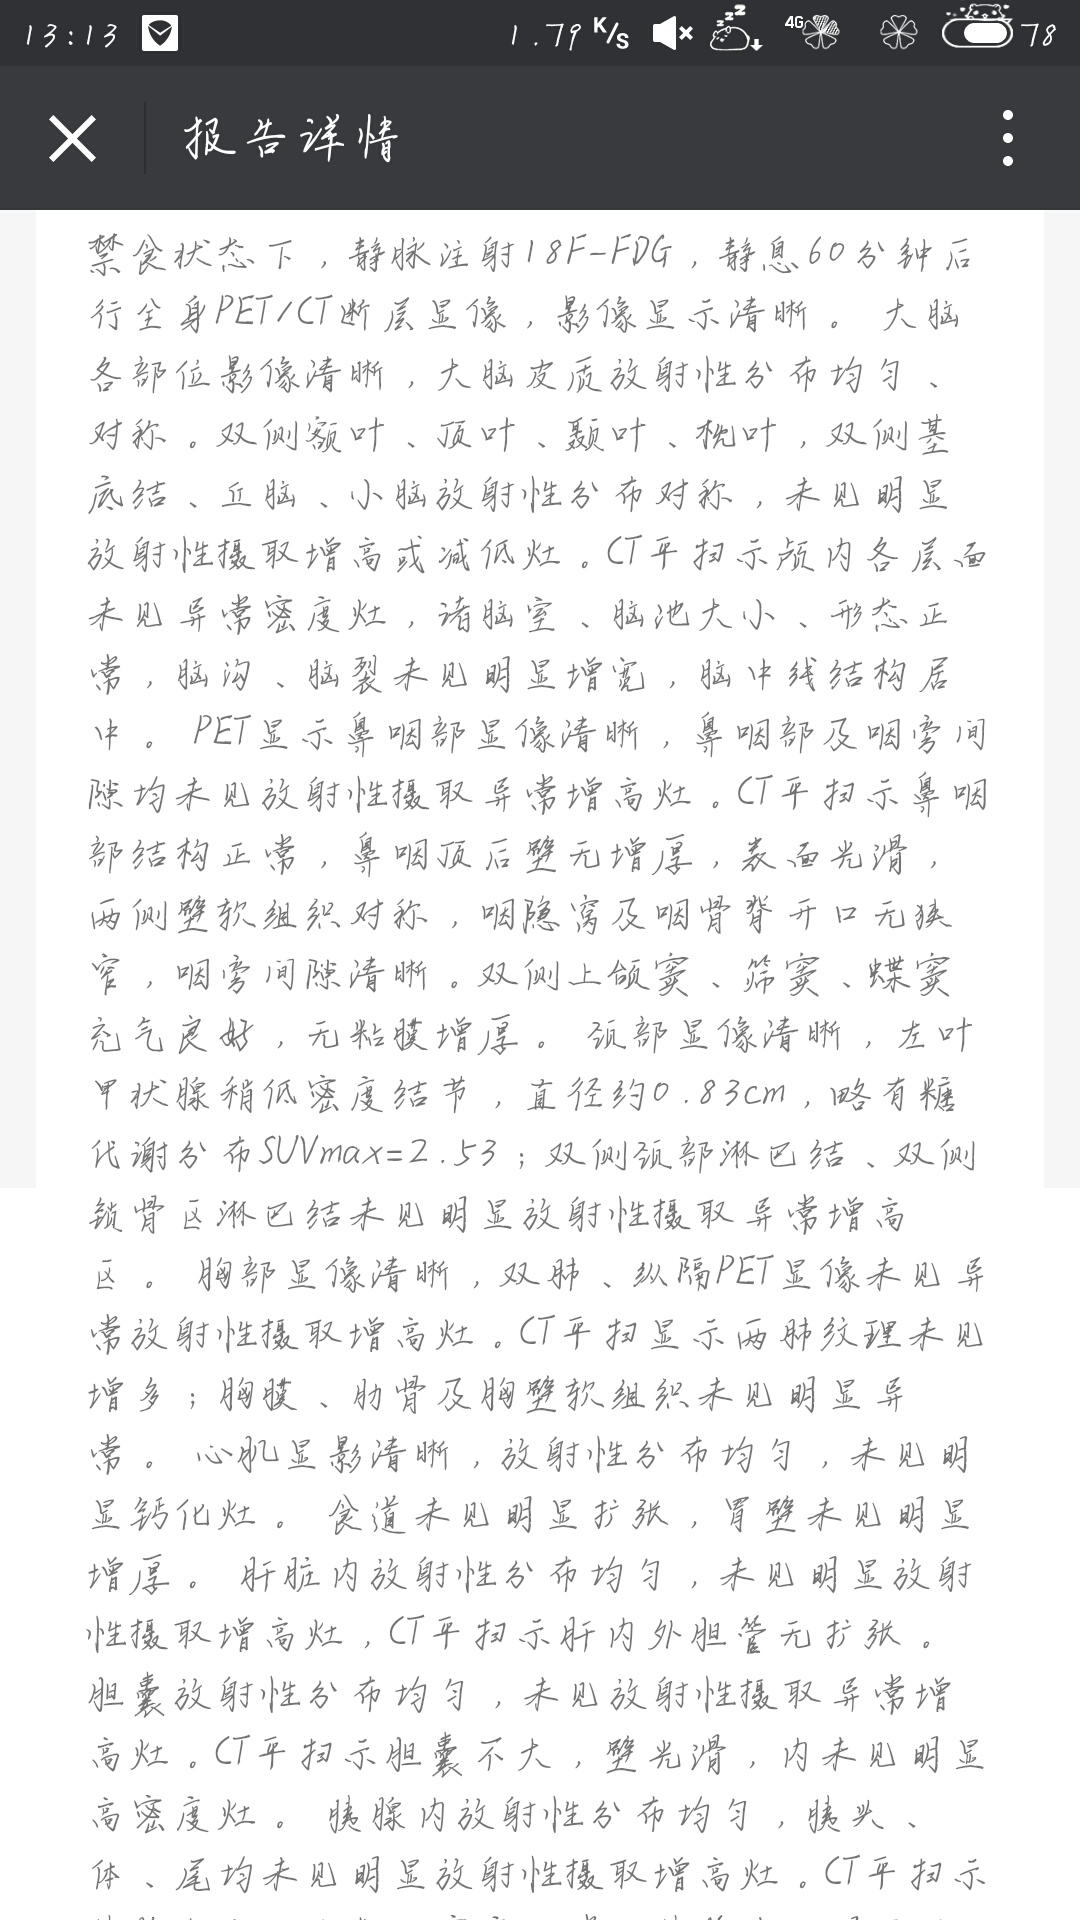 13:13
1.79 K/s
4G
78
报告详情
禁食状态下，静脉注射18F-FDG，静息60分钟后
行全身PET/CT断层显像，影像显示清晰。 大脑
各部位影像清晰，大脑皮质放射性分布均匀、
对称。双侧额叶、顶叶、颞叶、枕叶，双侧基
底结、丘脑、小脑放射性分布对称，未见明显
放射性摄取增高或减低灶。CT平扫示颅内各层面
未见异常密度灶，诸脑室、脑池大小、形态正
常，脑沟、脑裂未见明显增宽，脑中线结构居
中。 PET显示鼻咽部显像清晰，鼻咽部及咽旁间
隙均未见放射性摄取异常增高灶。CT平扫示鼻咽
部结构正常，鼻咽顶后壁无增厚，表面光滑，
两侧壁软组织对称，咽隐窝及咽骨脊开口无狭
窄，咽旁间隙清晰。双侧上颌窦、筛窦、蝶窦
充气良好，无粘膜增厚。 颈部显像清晰，左叶
甲状腺稍低密度结节，直径约0.83cm，略有糖
代谢分布SUVmax=2.53；双侧颈部淋巴结、双侧
锁骨区淋巴结未见明显放射性摄取异常增高
区。 胸部显像清晰，双肺、纵隔PET显像未见异
常放射性摄取增高灶。CT平扫显示两肺纹理未见
增多；胸膜、肋骨及胸壁软组织未见明显异
常。 心肌显影清晰，放射性分布均匀，未见明
显钙化灶。 食道未见明显扩张，胃壁未见明显
增厚。 肝脏内放射性分布均匀，未见明显放射
性摄取增高灶，CT平扫示肝内外胆管无扩张。
胆囊放射性分布均匀，未见放射性摄取异常增
高灶。CT平扫示胆囊不大，壁光滑，内未见明显
高密度灶。 胰腺内放射性分布均匀，胰头、
体、尾均未见明显放射性摄取增高灶。CT平扫示